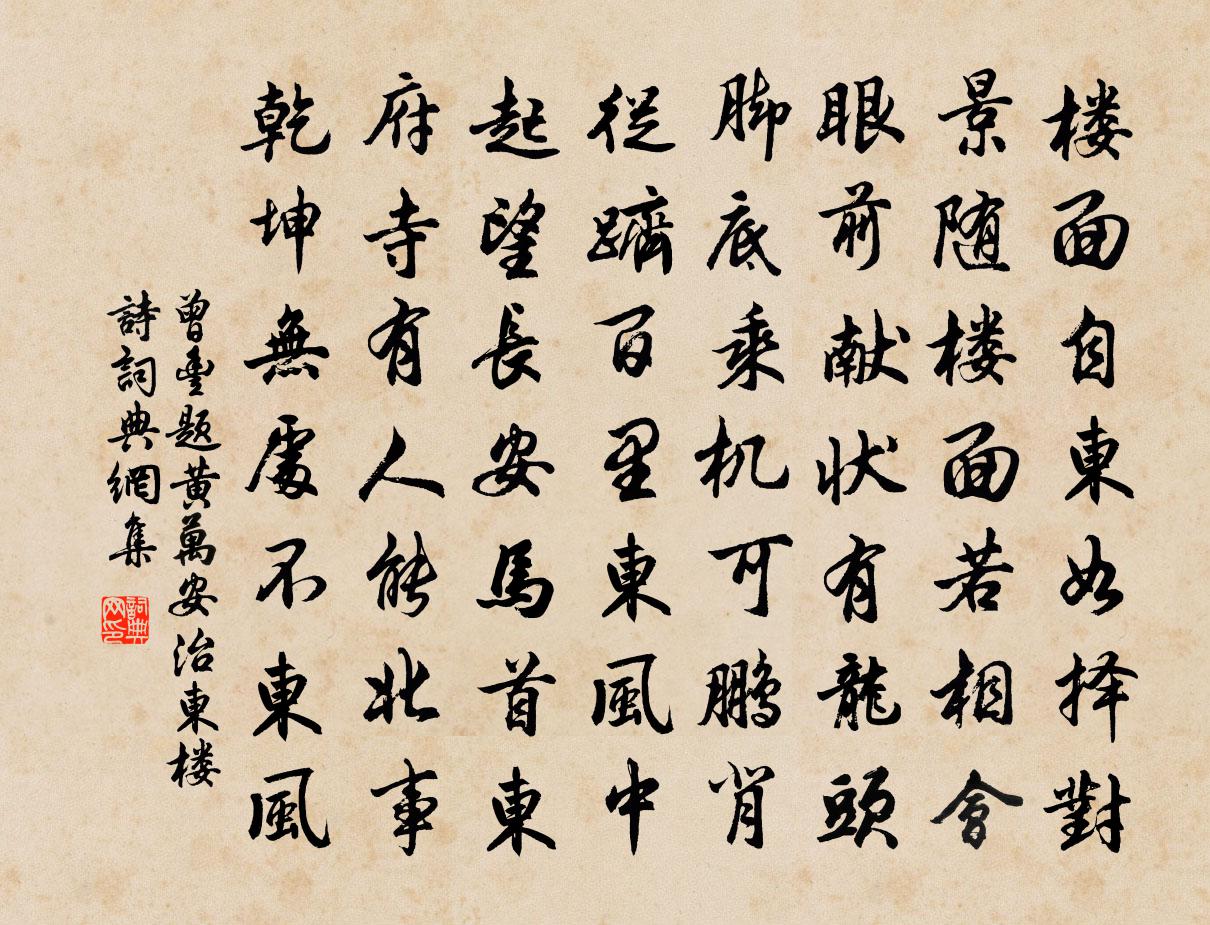 楼面自東如择對
景随楼面若相會
眼前献状有龍頭
脚底乘机可鹏肖
從躋百里東風中
起望長安馬首東
府寺有人能北事
乾坤無處不東風
曾豊題黃萬安治東楼
詩詞典網集
詞典网印